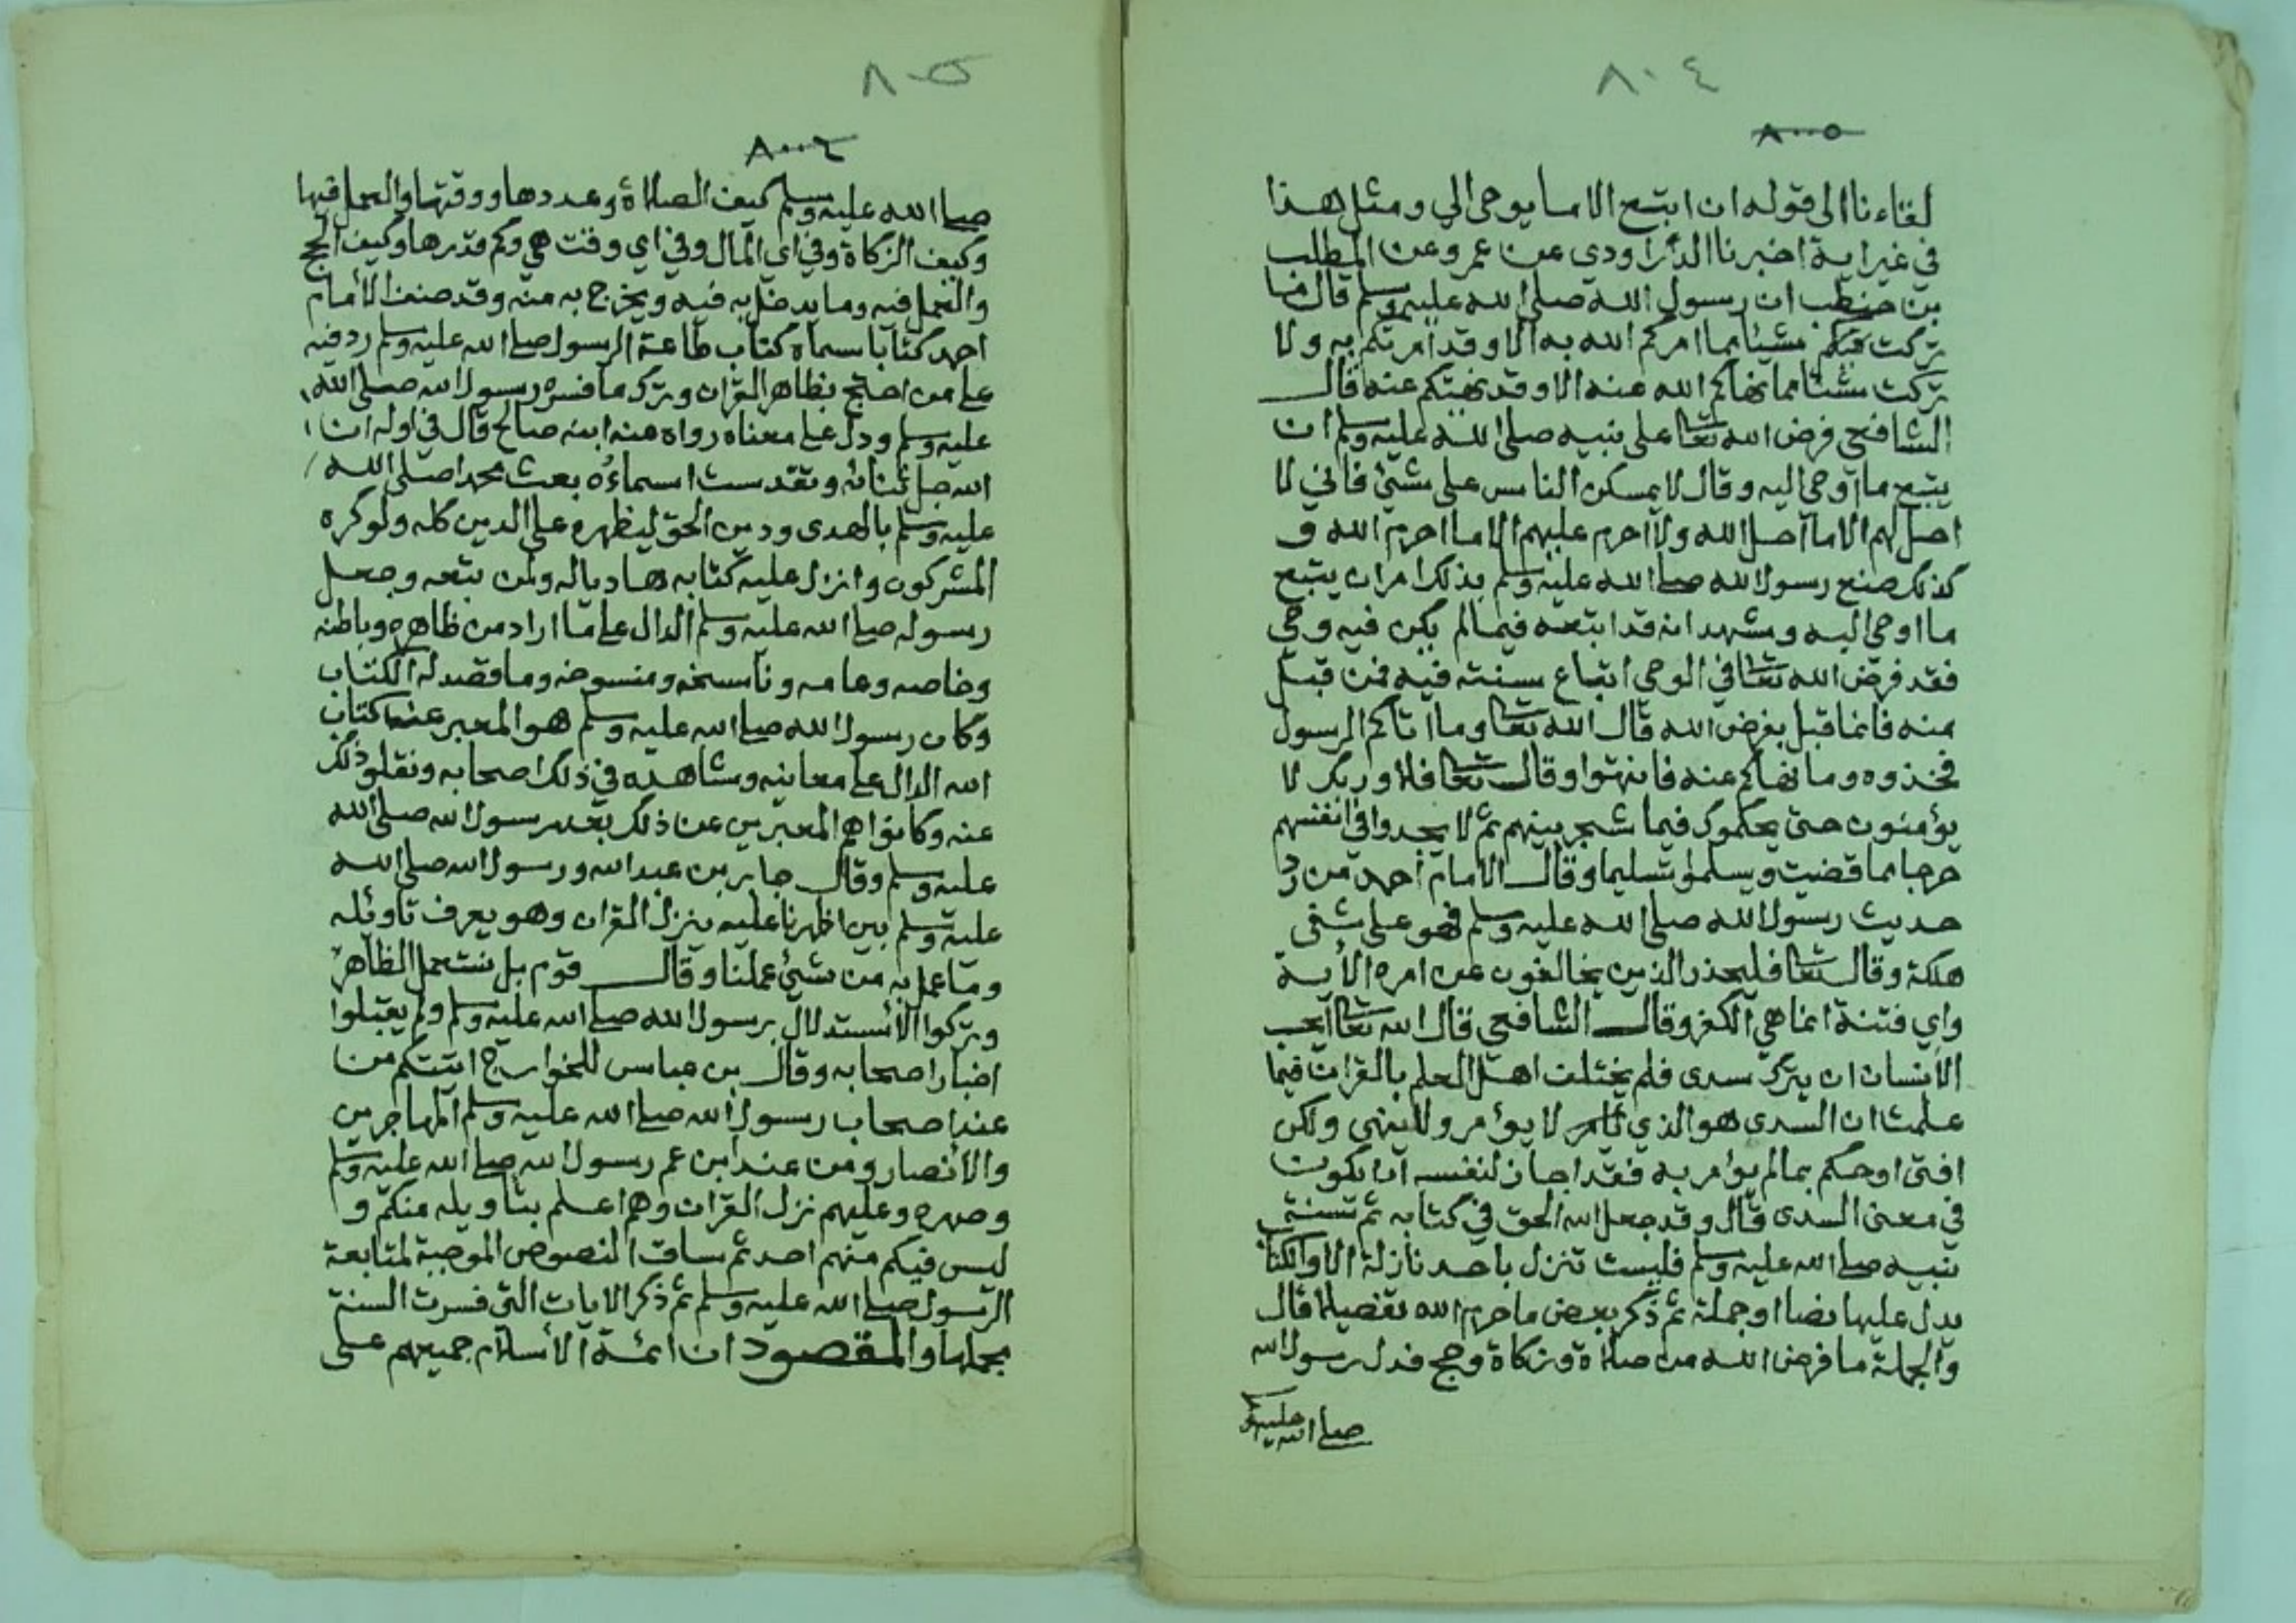 ٨٠٤
٨٠٠٥
لقاءنا الى قوله ان اتبع الا ما يوحى الي ومثل هذا
في غير اية اخبرنا الدراوردي عن عمرو عن المطلب
بن حنطب ان رسول الله صلى الله عليه وسلم قال ما
تركت فيكم شيئا مما امركم الله به الا وقد امرتكم به ولا
تركت شيئا مما نهاكم الله عنه الا وقد نهيتكم عنه قال
الشافعي فرض الله تعا على نبيه صلى الله عليه وسلم ان
يتبع ما اوحي اليه وقال لا يمسكن الناس على بشئ فاني لا
احل لهم الا ما احل الله ولا احرم عليهم الا ما احرم الله و
كذلك صنع رسول الله صلى الله عليه وسلم بذلك امر ان يتبع
ما اوحي اليه ونشهد انه قد اتبعه فيما لم يكن فيه وحي
فقد فرض الله تعا في الوحي اتباع سنته فيه فمن قبل
منه فانما قبل بفرض الله قال الله تعا وما اتاكم الرسول
فخذوه وما نهاكم عنه فانتهوا وقال تعا فلا وربك لا
يؤمنون حتى يحكموك فيما شجر بينهم ثم لا يجدوا في انفسهم
حرجا مما قضيت ويسلموا تسليما وقال الامام احمد من رد
حديث رسول الله صلى الله عليه وسلم فهو على شفى
هلكة وقال تعا فليحذر الذين يخالفون عن امره الأية
واي فتنة انما هي الكفر وقال الشافعي قال الله تعا ايحسب
الأنسان ان يترك سدى فلم يختلف اهل العلم بالقران فيما
علمت ان السدى هو الذي لا يؤمر ولا ينهى ولكن
افتى او حكم بما لم يؤمر به فقد اجاز لنفسه ان يكون
في معنى السدى قال وقد جعل الله الحق في كتابه ثم سنة
نبيه صلى الله عليه وسلم فليست تنزل باحد نازلة الا والكتاب
يدل عليها نصا او جملة ثم ذكر بعض ما حرم الله تفصيلا قال
والجملة ما فرض الله من صلاة وزكاة وحج فدل رسول الله
صلى الله عليه و
٨٠٥
٨٠٠٦
صلى الله عليه وسلم كيف الصلاة وعددها ووقتها والعمل فيها
وكيف الزكاة وفي اي المال وفي اي وقت هي وكم قدرها وكيف الحج
والعمل فيه وما يدخل به فيه ويخرج به منه وقد صنف الأمام
احمد كتابا سماه كتاب طاعة الرسول صلى الله عليه وسلم رد فيه
على من احتج بظاهر القران وترك ما فسره رسول الله صلى الله
عليه وسلم ودل على معناه رواه عنه ابنه صالح قال في اوله ان
الله جل ثنائه وتقدست اسماءه بعث محمدا صلى الله
عليه وسلم بالهدى ودين الحق ليظهره على الدين كله ولو كره
المشركون وانزل عليه كتابه هاديا له ولمن تبعه وجعل
رسوله صلى الله عليه وسلم الدال على ما اراد من ظاهره وباطنه
وخاصه وعامه وناسخه ومنسوخه وما قصد له الكتاب
وكان رسول الله صلى الله عليه وسلم هو المعبر عن كتاب
الله الدال على معانيه وشاهده في ذلك اصحابه ونقلو ذلك
عنه وكانوا هم المعبرين عن ذلك بعد رسول الله صلى الله
عليه وسلم وقال جابر بن عبد الله ورسول الله صلى الله
عليه وسلم بين اظهرنا عليه ينزل القران وهو يعرف تاويله
وما عمل به من شئ عملنا وقال قوم بل نستعمل الظاهر
وتركوا الأستدلال برسول الله صلى الله عليه وسلم ولم يقبلوا
اخبار اصحابه وقال بن عباس للخوارج اتيتكم من
عند اصحاب رسول الله صلى الله عليه وسلم المهاجرين
والأنصار ومن عند ابن عم رسول الله صلى الله عليه وسلم
وصهره وعليهم نزل القران وهم اعلم بتاويله منكم و
ليس فيكم منهم احد ثم ساق النصوص الموجبة لمتابعة
الرسول صلى الله عليه وسلم ثم ذكر الايات التي فسرت السنة
مجملها والمقصود ان ائمة الأسلام جميعهم على